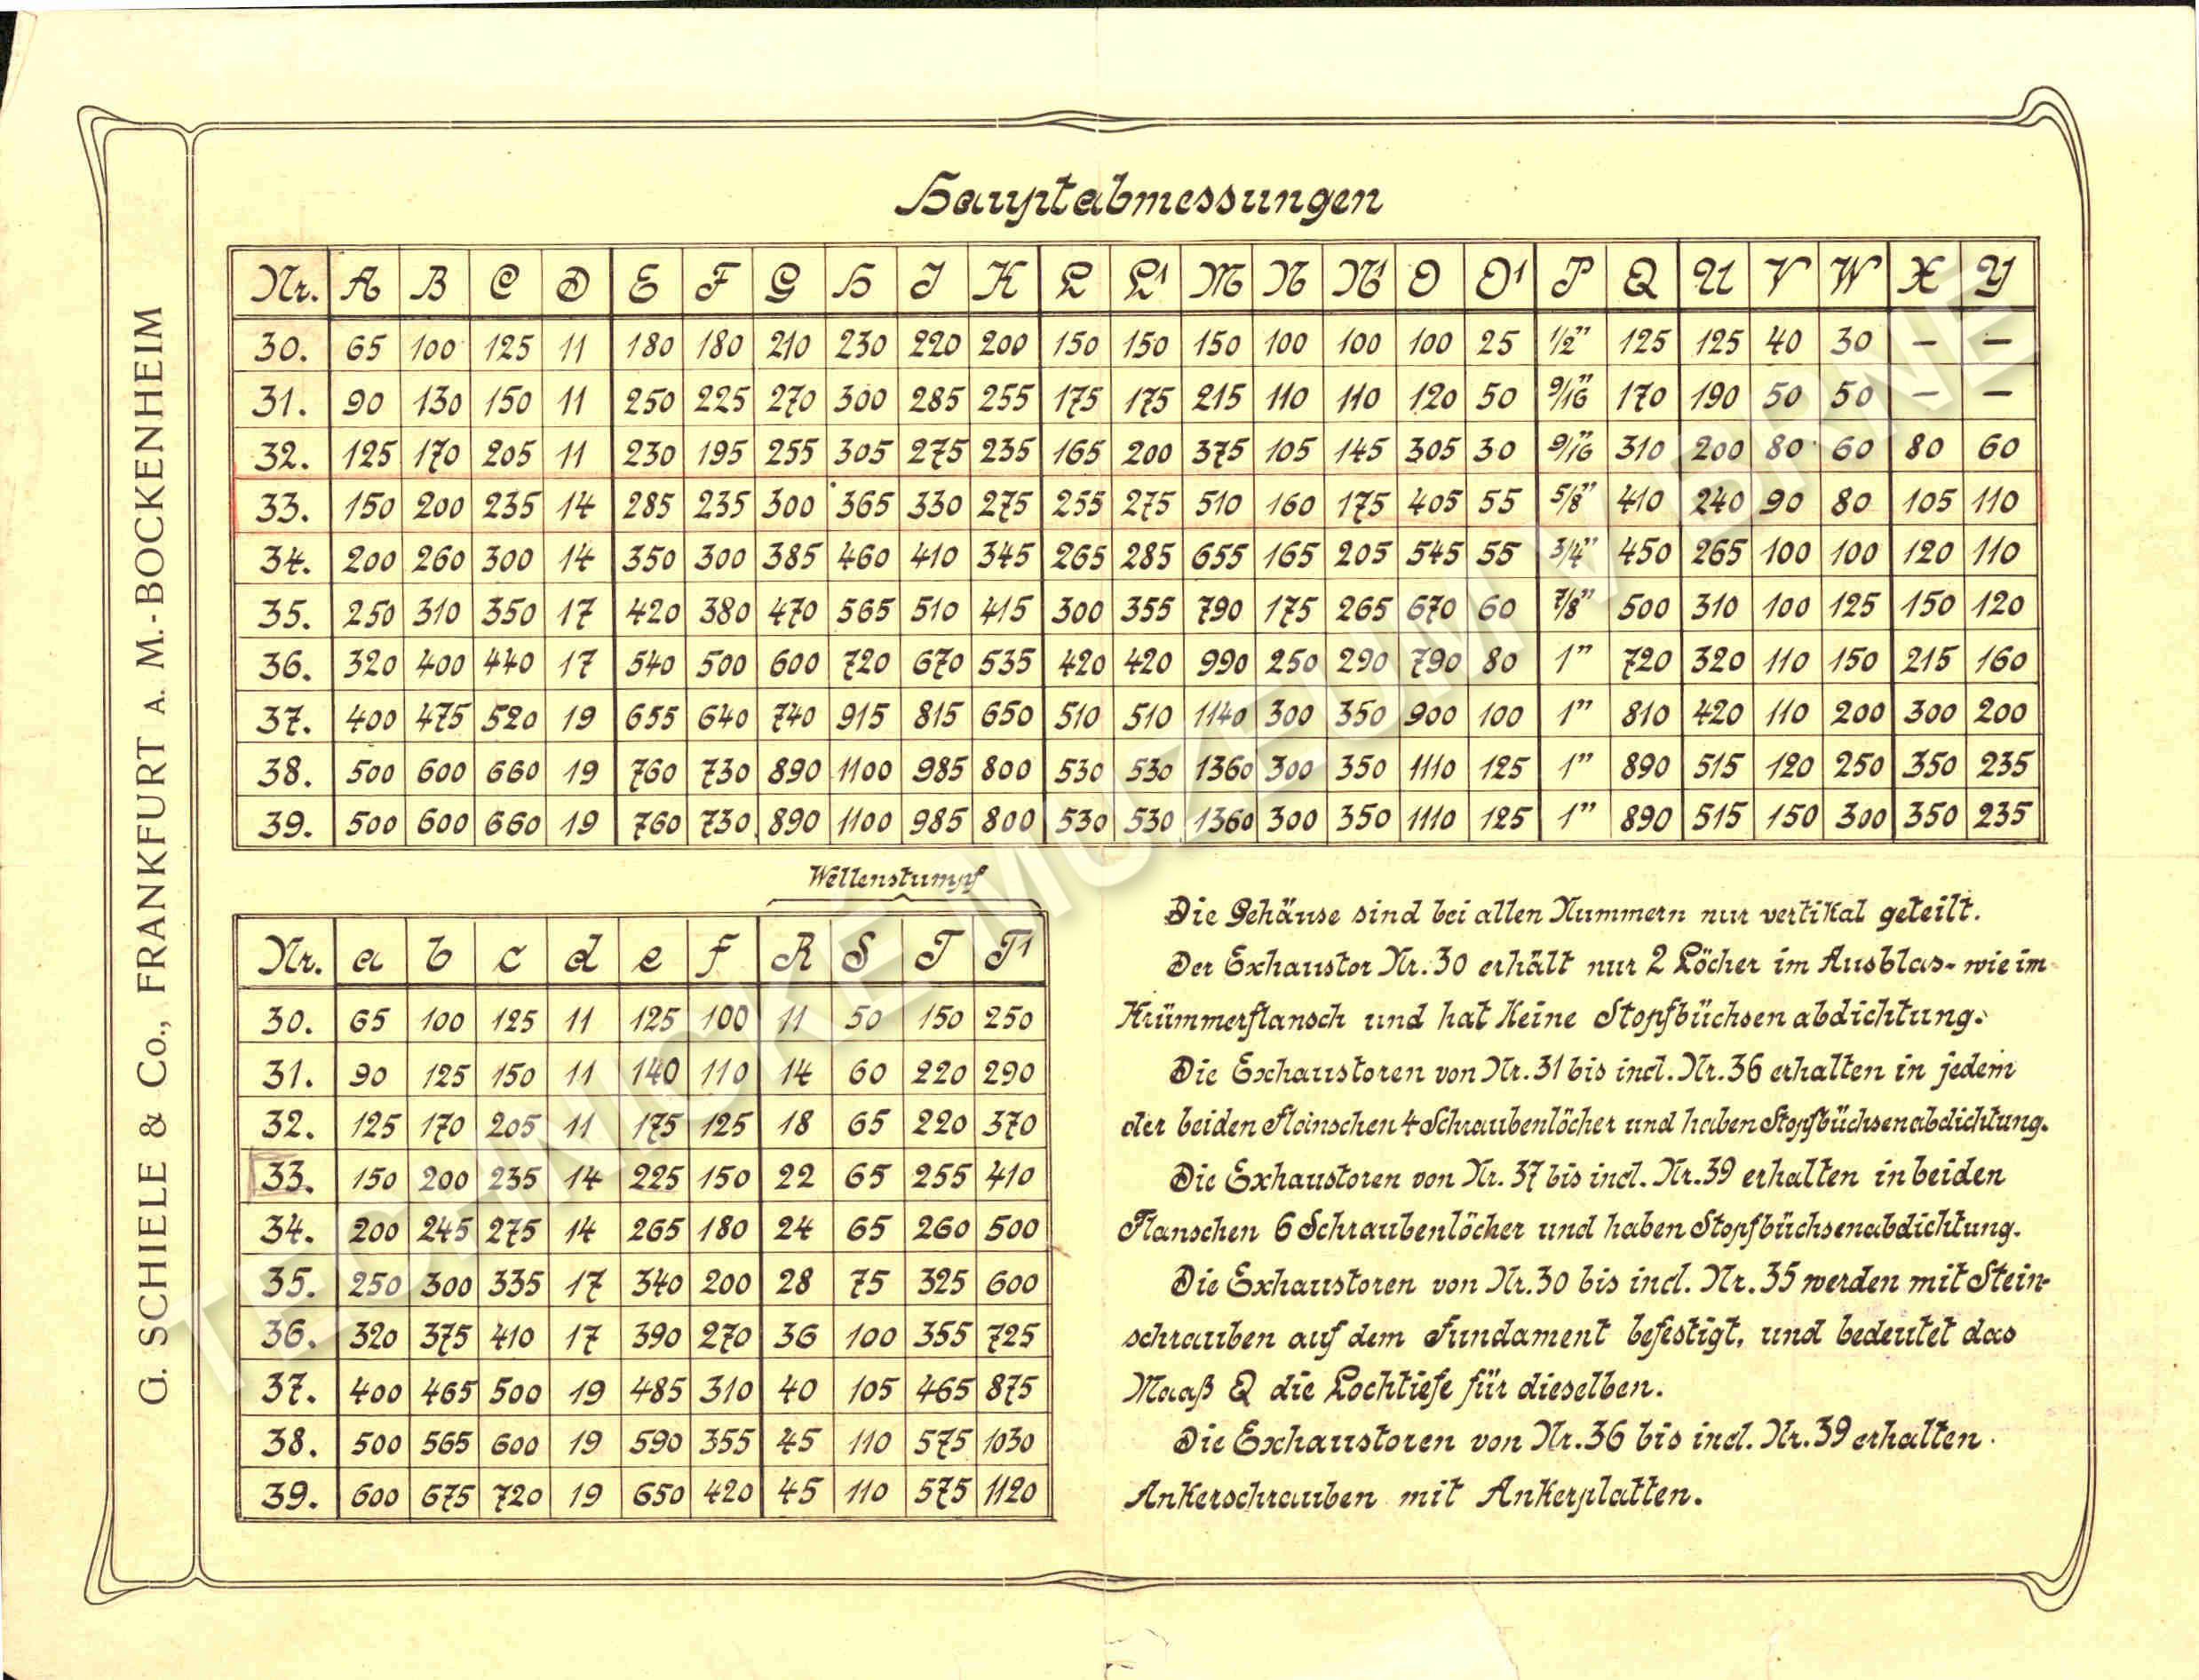 G. SCHIELE & Co., FRANKFURT A. M.-BOCKENHEIM
Hauptabmessungen
Nr. A B C D E F G H J K L L1 M N N1 O O1 P Q U V W X Y
30. 65 100 125 11 180 180 210 230 220 200 150 150 150 100 100 100 25 1/2" 125 125 40 30 — —
31. 90 130 150 11 250 225 270 300 285 255 175 175 215 110 110 120 50 9/16" 170 190 50 50 — —
32. 125 170 205 11 230 195 255 305 275 235 165 200 375 105 145 305 30 9/16" 310 200 80 60 80 60
33. 150 200 235 14 285 235 300 365 330 275 255 275 510 160 175 405 55 5/8" 410 240 90 80 105 110
34. 200 260 300 14 350 300 385 460 410 345 265 285 655 165 205 545 55 3/4" 450 265 100 100 120 110
35. 250 310 350 17 420 380 470 565 510 415 300 355 790 175 265 670 60 7/8" 500 310 100 125 150 120
36. 320 400 440 17 540 500 600 720 670 535 420 420 990 250 290 790 80 1" 720 320 110 150 215 160
37. 400 475 520 19 655 640 740 915 815 650 510 510 1140 300 350 900 100 1" 810 420 110 200 300 200
38. 500 600 660 19 760 730 890 1100 985 800 530 530 1360 300 350 1110 125 1" 890 515 120 250 350 235
39. 500 600 660 19 760 730 890 1100 985 800 530 530 1360 300 350 1110 125 1" 890 515 150 300 350 235
Wellenstumpf
Nr. a b c d e f R S T T1
30. 65 100 125 11 125 100 11 50 150 250
31. 90 125 150 11 140 110 14 60 220 290
32. 125 170 205 11 175 125 18 65 220 370
33. 150 200 235 14 225 150 22 65 255 410
34. 200 245 275 14 265 180 24 65 260 500
35. 250 300 335 17 340 200 28 75 325 600
36. 320 375 410 17 390 270 36 100 355 725
37. 400 465 500 19 485 310 40 105 465 875
38. 500 565 600 19 590 355 45 110 575 1030
39. 600 675 720 19 650 420 45 110 575 1120
Die Gehäuse sind bei allen Nummern nur vertikal geteilt.
Der Exhaustor Nr. 30 erhält nur 2 Löcher im Ausblas- wie im
Krümmerflansch und hat keine Stopfbüchsenabdichtung.
Die Exhaustoren von Nr. 31 bis incl. Nr. 36 erhalten in jedem
der beiden Flanschen 4 Schraubenlöcher und haben Stopfbüchsenabdichtung.
Die Exhaustoren von Nr. 37 bis incl. Nr. 39 erhalten in beiden
Flanschen 6 Schraubenlöcher und haben Stopfbüchsenabdichtung.
Die Exhaustoren von Nr. 30 bis incl. Nr. 35 werden mit Stein-
schrauben auf dem Fundament befestigt, und bedeutet das
Maaß Q die Lochtiefe für dieselben.
Die Exhaustoren von Nr. 36 bis incl. Nr. 39 erhalten
Ankerschrauben mit Ankerplatten.
TECHNICKÉ MUZEUM V BRNĚ